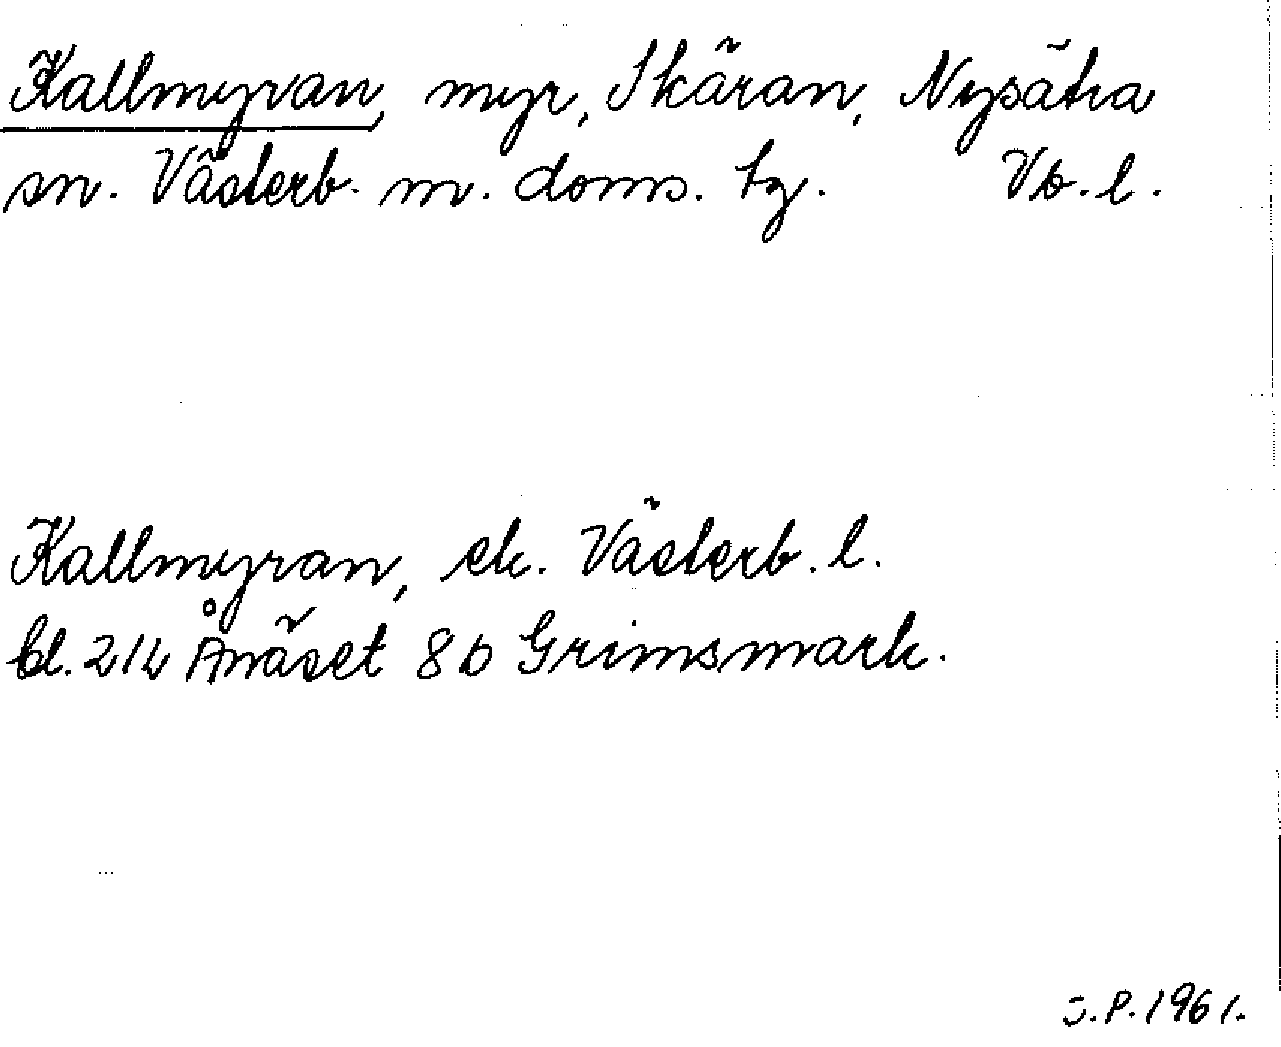 Kallmyran, myr, Skäran, Nysätra
sn. Västerb. m. doms. tg. Vb. l.
Kallmyran, ek. Västerb. l.
bl. 21L Ånäset 8b Grimsmark.
J.P. 1961.